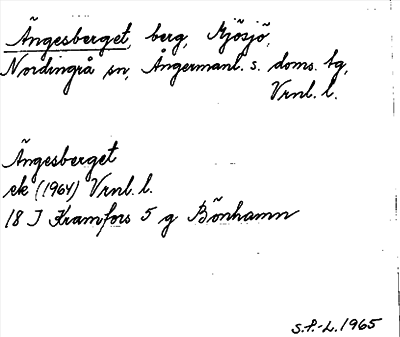 Ängesberget, berg, Mjösjö,
Nordingrå sn, Ångermanl. s. doms. tg,
Vrnl. l.
Ängesberget
ek (1964) Vrnl. l.
18 I Kramfors 5 g Bönhamn
S.P.-L. 1965